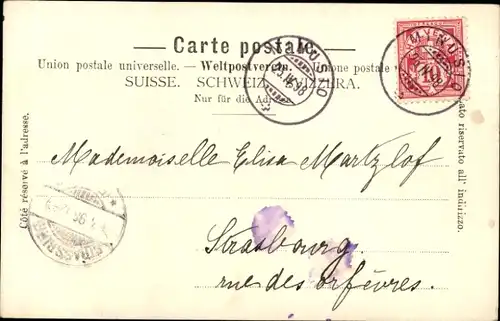 Carte postale.
Union postale universelle. — Weltpostverein. — Unione postale
SUISSE. SCHWEIZ. SVIZZERA.
Nur für die
Côté réservé à l'adresse.
Lato riservato all' indirizzo.
10
Mademoiselle Elisa Martzlof
Strasbourg.
rue des orfèvres.